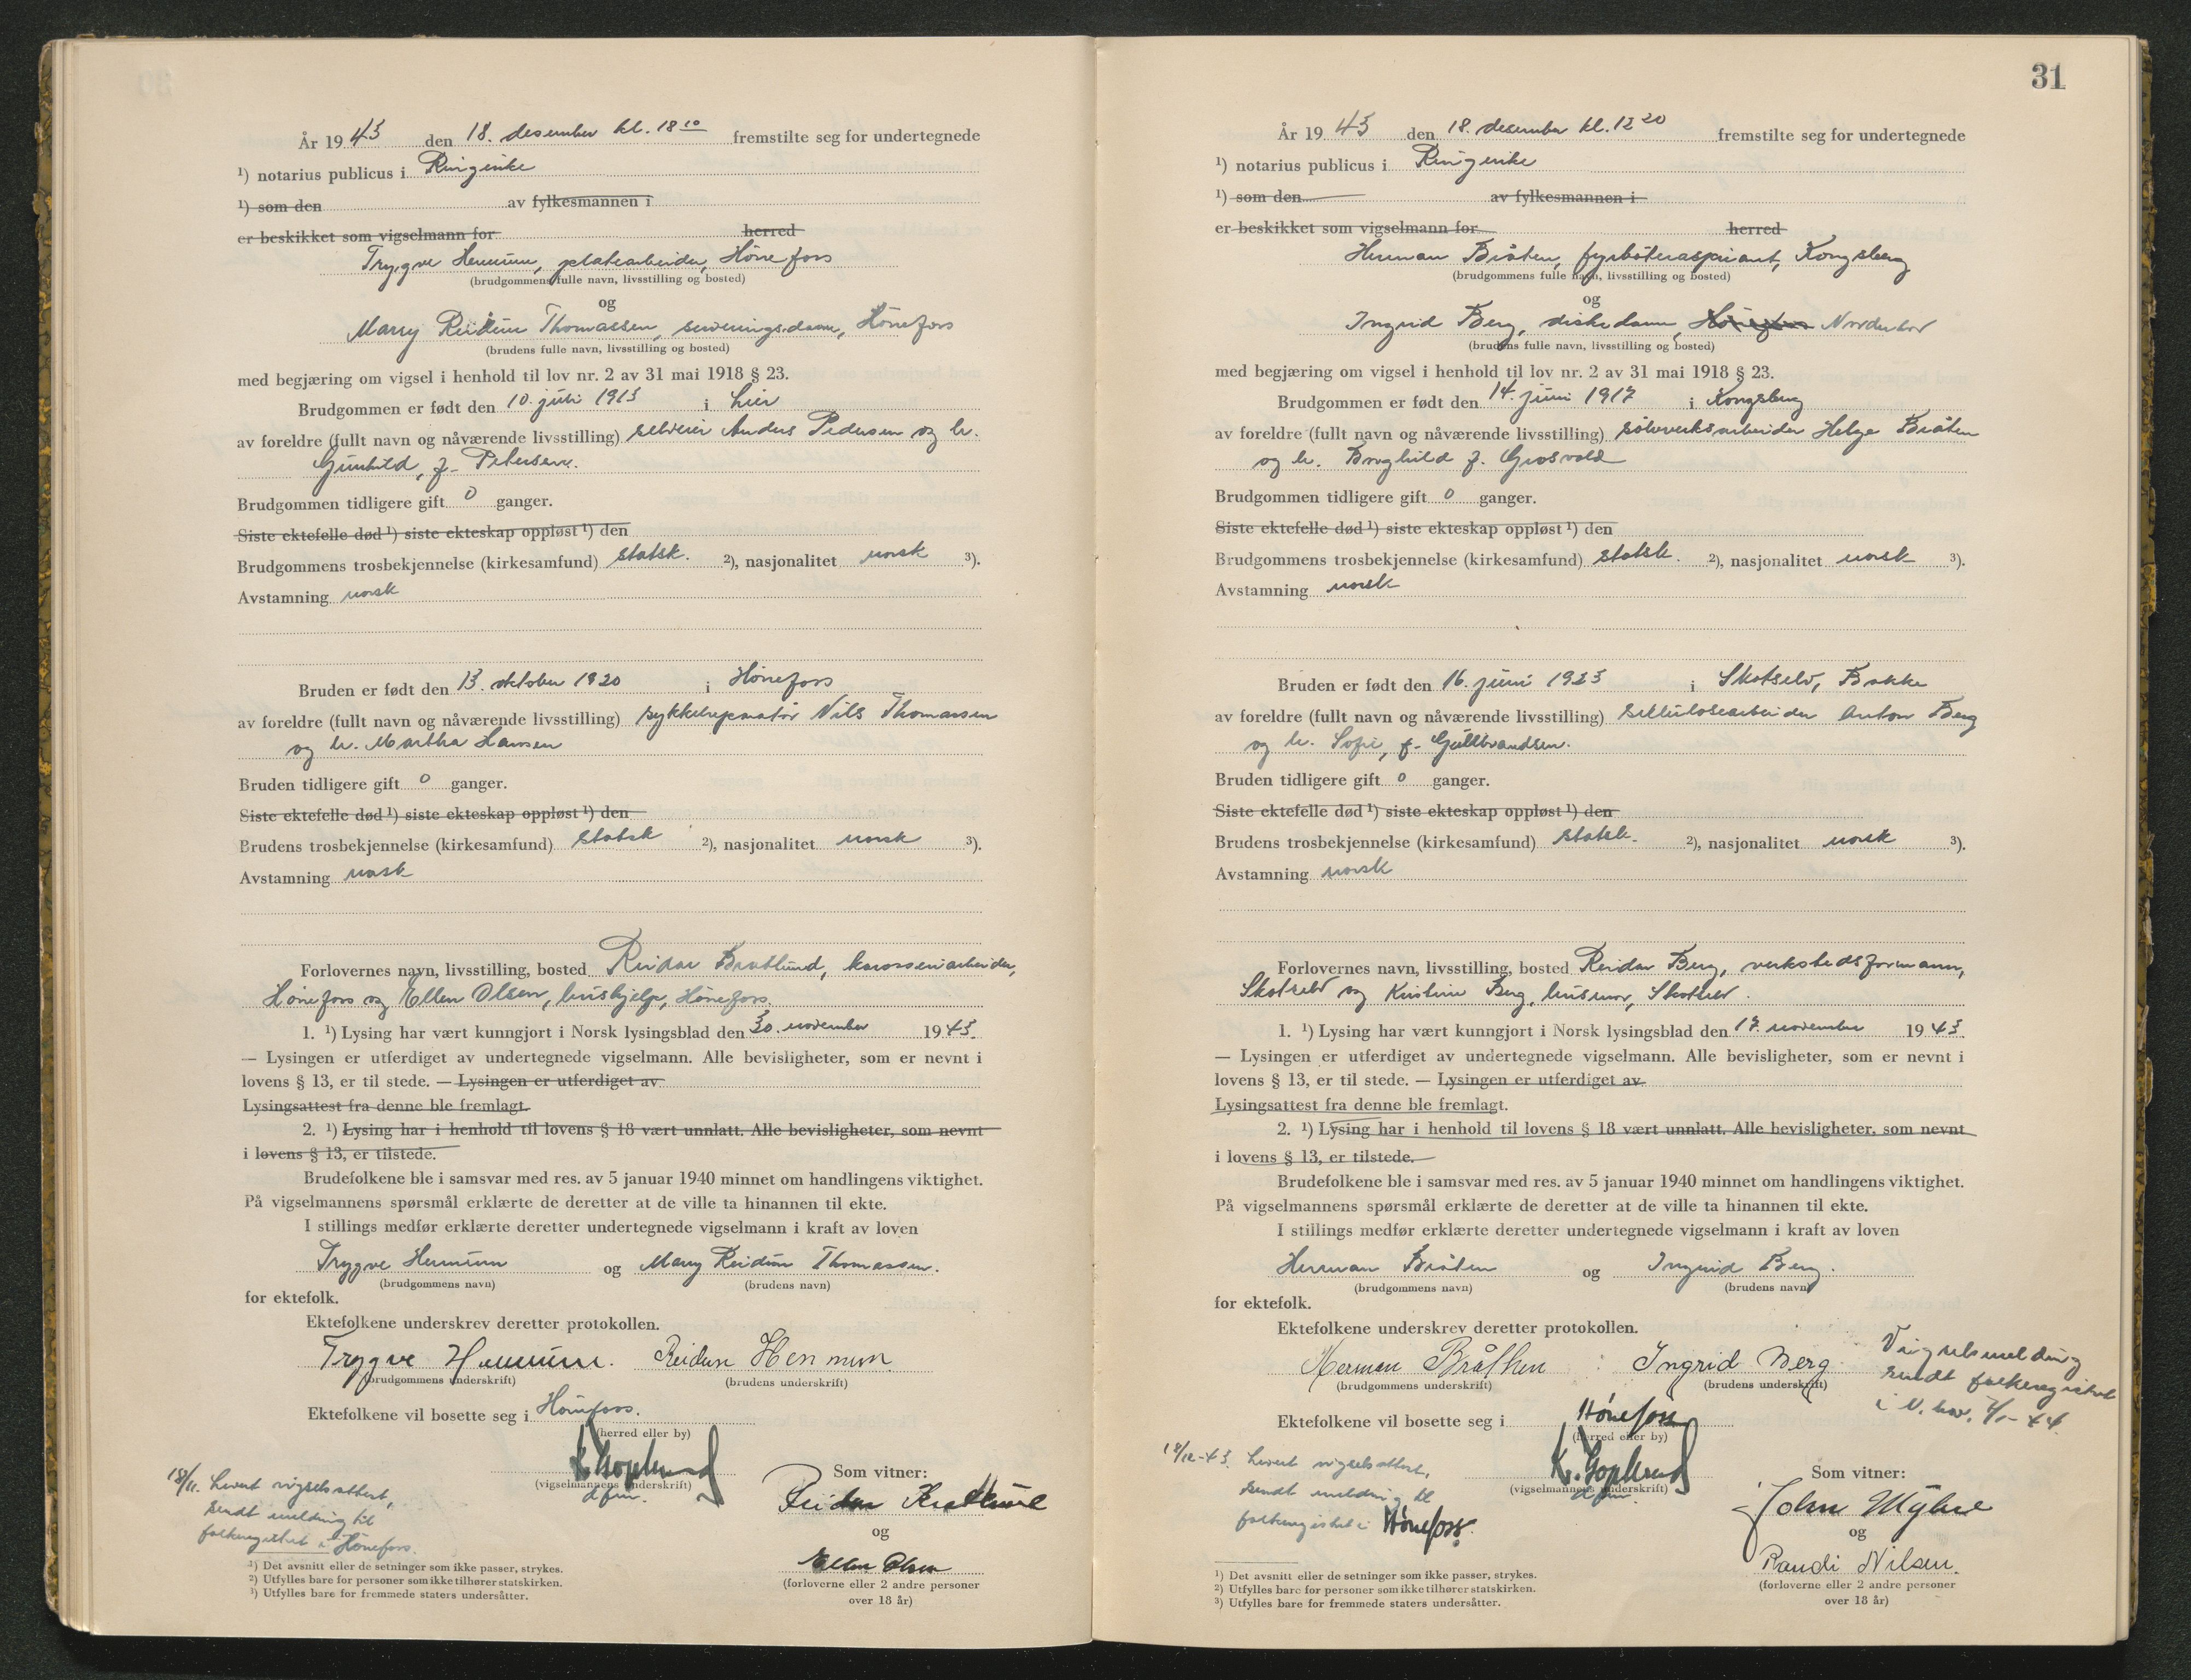 År 1943 den 18. desember kl. 18 10 fremstilte seg for undertegnede
¹) notarius publicus i Ringerike
¹) som den av fylkesmannen i
er beskikket som vigselmann for herred
Trygve Hennum, platearbeider, Hönefoss
(brudgommens fulle navn, livsstilling og bosted)
og
Marry Reidun Thomassen, serveringsdame, Hönefoss
(brudens fulle navn, livsstilling og bosted)
med begjæring om vigsel i henhold til lov nr. 2 av 31 mai 1918 § 23.
Brudgommen er født den 10. juli 1913 i Lier
av foreldre (fullt navn og nåværende livsstilling) selveier Anders Pedersen og h.
Gunhild, f. Petersen.
Brudgommen tidligere gift 0 ganger.
Siste ektefelle død ¹) siste ekteskap oppløst ¹) den
Brudgommens trosbekjennelse (kirkesamfund) statsk. ²), nasjonalitet norsk ³).
Avstamning norsk
Bruden er født den 13. oktober 1920 i Hönefoss
av foreldre (fullt navn og nåværende livsstilling) sykkelreparatör Nils Thomassen
og h. Martha Hansen
Bruden tidligere gift 0 ganger.
Siste ektefelle død ¹) siste ekteskap oppløst ¹) den
Brudens trosbekjennelse (kirkesamfund) statsk ²), nasjonalitet norsk ³).
Avstamning norsk
Forlovernes navn, livsstilling, bosted Reidar Bratlund, karosseriarbeider,
Hönefoss og Ellen Olsen, hushjelp, Hönefoss.
1. ¹) Lysing har vært kunngjort i Norsk lysingsblad den 30. november 1943.
— Lysingen er utferdiget av undertegnede vigselmann. Alle bevisligheter, som er nevnt i
lovens § 13, er til stede. — Lysingen er utferdiget av
Lysingsattest fra denne ble fremlagt.
2. ¹) Lysing har i henhold til lovens § 18 vært unnlatt. Alle bevisligheter, som nevnt
i lovens § 13, er tilstede.
Brudefolkene ble i samsvar med res. av 5 januar 1940 minnet om handlingens viktighet.
På vigselmannens spørsmål erklærte de deretter at de ville ta hinannen til ekte.
I stillings medfør erklærte deretter undertegnede vigselmann i kraft av loven
Trygve Hennum og Marry Reidun Thomassen.
(brudgommens navn) (brudens navn)
for ektefolk.
Ektefolkene underskrev deretter protokollen.
Trygve Hennum. Reidun Hennum
(brudgommens underskrift) (brudens underskrift)
Ektefolkene vil bosette seg i Hönefoss.
(herred eller by)
K. Goplerud
(vigselmannens underskrift)
dfm.
18/12. Levert vigselsattest,
sendt melding til
folkeregistret i Hönefoss.
Som vitner:
Reidar Bratlund
og
Ellen Olsen
(forloverne eller 2 andre personer
over 18 år)
¹) Det avsnitt eller de setninger som ikke passer, strykes.
²) Utfylles bare for personer som ikke tilhører statskirken.
³) Utfylles bare for fremmede staters undersåtter.
31
År 1943 den 18. desember kl. 12 20 fremstilte seg for undertegnede
¹) notarius publicus i Ringerike
¹) som den av fylkesmannen i
er beskikket som vigselmann for herred
Herman Bråten, fyrböteraspirant, Kongsberg
(brudgommens fulle navn, livsstilling og bosted)
og
Ingrid Berg, diskedame, Hönefoss Norderhov
(brudens fulle navn, livsstilling og bosted)
med begjæring om vigsel i henhold til lov nr. 2 av 31 mai 1918 § 23.
Brudgommen er født den 14. juni 1917 i Kongsberg
av foreldre (fullt navn og nåværende livsstilling) sölvverksarbeider Helge Bråten
og h. Borghild f. Grosvold
Brudgommen tidligere gift 0 ganger.
Siste ektefelle død ¹) siste ekteskap oppløst ¹) den
Brudgommens trosbekjennelse (kirkesamfund) statsk. ²), nasjonalitet norsk ³).
Avstamning norsk
Bruden er født den 16. juni 1923 i Skotselv, Bakke
av foreldre (fullt navn og nåværende livsstilling) cellulosearbeider Anton Berg
og h. Sofie, f. Gulbrandsen.
Bruden tidligere gift 0 ganger.
Siste ektefelle død ¹) siste ekteskap oppløst ¹) den
Brudens trosbekjennelse (kirkesamfund) statsk. ²), nasjonalitet norsk ³).
Avstamning norsk
Forlovernes navn, livsstilling, bosted Reidar Berg, verkstedsformann,
Skotselv og Kristine Berg, husmor, Skotselv.
1. ¹) Lysing har vært kunngjort i Norsk lysingsblad den 17. november 1943
— Lysingen er utferdiget av undertegnede vigselmann. Alle bevisligheter, som er nevnt i
lovens § 13, er til stede. — Lysingen er utferdiget av
Lysingsattest fra denne ble fremlagt.
2. ¹) Lysing har i henhold til lovens § 18 vært unnlatt. Alle bevisligheter, som nevnt
i lovens § 13, er tilstede.
Brudefolkene ble i samsvar med res. av 5 januar 1940 minnet om handlingens viktighet.
På vigselmannens spørsmål erklærte de deretter at de ville ta hinannen til ekte.
I stillings medfør erklærte deretter undertegnede vigselmann i kraft av loven
Herman Bråten og Ingrid Berg.
(brudgommens navn) (brudens navn)
for ektefolk.
Ektefolkene underskrev deretter protokollen.
Herman Bråthen Ingrid Berg
(brudgommens underskrift) (brudens underskrift)
Vigselsmelding
sendt folkeregistret
i N.hov. 7/1-44
Ektefolkene vil bosette seg i Hönefoss
(herred eller by)
K. Goplerud
(vigselmannens underskrift)
dfm.
18/12-43. Levert vigselsattest,
sendt melding til
folkeregistret i Hönefoss.
Som vitner:
John Myhre
og
Randi Nilsen.
(forloverne eller 2 andre personer
over 18 år)
¹) Det avsnitt eller de setninger som ikke passer, strykes.
²) Utfylles bare for personer som ikke tilhører statskirken.
³) Utfylles bare for fremmede staters undersåtter.